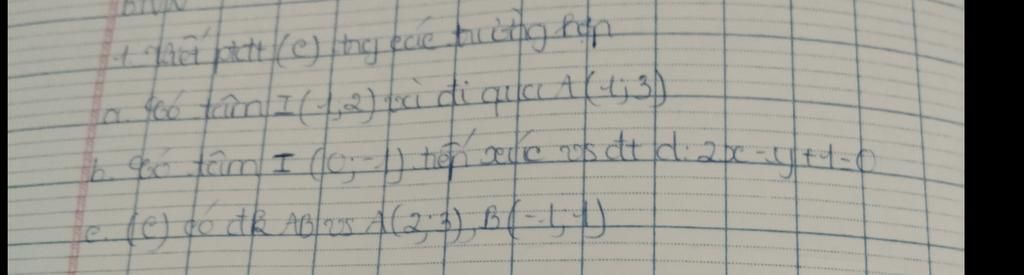 1. Viết ptđt (C) trg các trường hợp
a. Có tâm I(1,2) và đi qua A(1;3)
b. Có tâm I (0;-1) tiếp xúc vs đt d: 2x-y+1=0
c. (C) có đk AB vs A(2;3), B(-1;1)